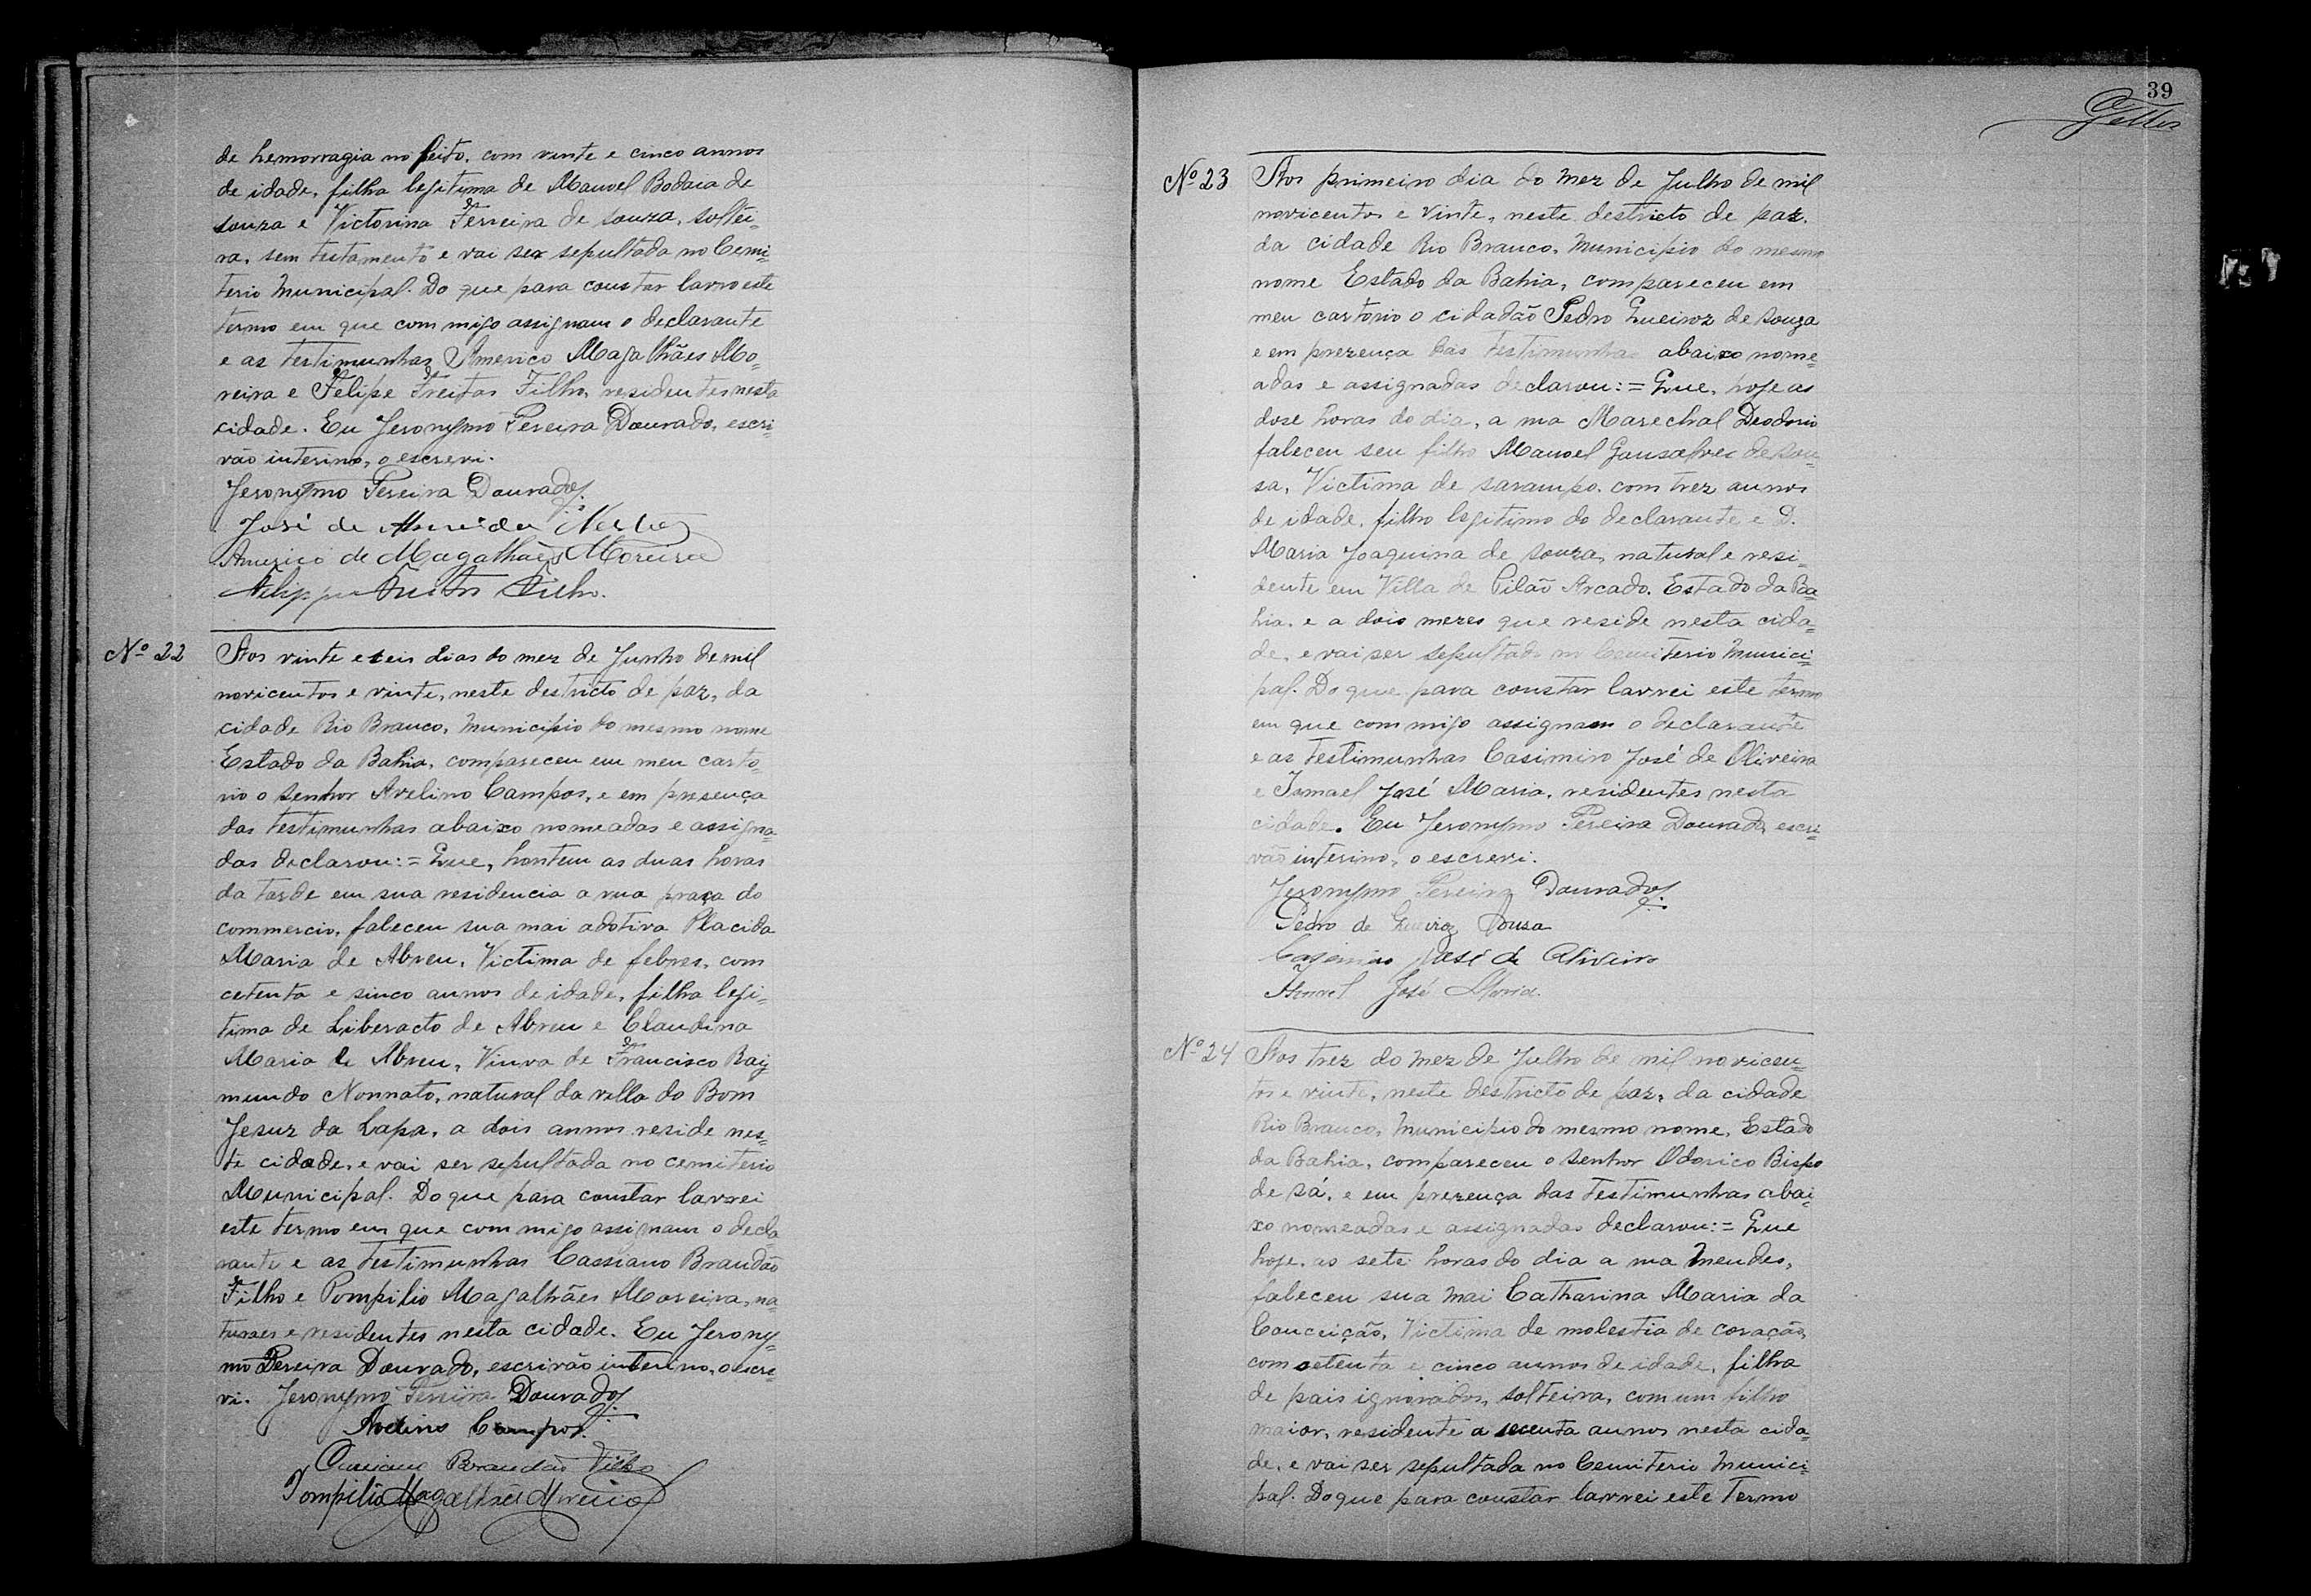 de hemorragia no peito, com vinte e cinco annos
de idade, filha legitima de Manoel Bodaca de
souza e Victorina Ferreira de souza, soltei-
ra, sem testamento e vai ser sepultada no Cemi-
terio Municipal. Do que para constar lavro este
termo em que commigo assignam o declarante
e as testimunhas Americo Magalhães Mo-
reira e Felipe Freitas Filho, residentes nesta
cidade. Eu Jeronymo Pereira Dourado, escri-
vão interino, o escrevi.
Jeronymo Pereira Dourado.
José de Almeida
Americo de Magalhães Moreira
Filippe Freitas Filho.
Nº 22 Aos vinte e seis dias do mez de Junho de mil
novicentos e vinte, neste destricto de paz, da
cidade Rio Branco, Municipio do mesmo nome
Estado da Bahia, compareceu em meu carto-
rio o senhor Avelino Campos, e em presença
das testimunhas abaixo nomeadas e assigna-
das declarou:= Que, hontem as duas horas
da tarde em sua residencia a rua praça do
commercio, faleceu sua mai adotiva Placida
Maria de Abreu, Victima de febres, com
cetenta e sinco annos de idade, filha legi-
tima de Liberacto de Abreu e Claudina
Maria de Abreu, Viuva de Francisco Ray-
mundo Nonnato, natural da villa do Bom
Jesuz da Lapa, a dois annos reside nes-
te cidade, e vai ser sepultada no cemiterio
Municipal. Do que para constar lavrei
este termo em que commigo assignam o decla
rante e as testimunhas Cassiano Brandão
Filho e Pompilio Magalhães Moreira, na-
turaes e residentes nesta cidade. Eu Jerony-
mo Pereira Dourado, escrivão interino, o escre-
vi. Jeronymo Pereira Dourado.
Avelino Campos.
Cassiano Brandão Filho
Pompilio Magalhães Moreira
39
Nº 23 Aos primeiro dia do mez de Julho de mil
novicentos e vinte, neste destricto de paz,
da cidade Rio Branco, Municipio do mesmo
nome Estado da Bahia, compareceu em
meu cartorio o cidadão Pedro Queiroz de souza
e em prezença das testimunhas abaixo nome-
adas e assignadas declarou:= Que, hoje as
dose horas do dia, a rua Marechal Deodorio
faleceu seu filho Manoel Gonsalves de Sou-
sa, Victima de sarampo, com trez annos
de idade, filho legitimo do declarante e D.
Maria Joaquina de souza, natural e resi-
dente em Villa de Pilão Arcado, Estado da Ba-
hia, e a dois mezes que reside nesta cida-
de, e vai ser sepultado no Cemiterio Munici-
pal. Do que para constar lavrei este termo
em que commigo assignam o declarante
e as testimunhas Casimiro José de Oliveira
e Ismael José Maria, residentes nesta
cidade. Eu Jeronymo Pereira Dourado, escri-
vão interino, o escrevi.
Jeronymo Pereira Dourado.
Pedro de Queiroz Sousa
Casimiro José de Oliveira
Ismael José Maria.
Nº 24 Aos trez do mez de Julho de mil novicen-
tos e vinte, neste destricto de paz, da cidade
Rio Branco, Municipio do mesmo nome, Estado
da Bahia, compareceu o senhor Odorico Bispo
de sá, e em prezença das testimunhas abai-
xo nomeadas e assignadas declarou:= Que
hoje, as sete horas do dia a rua Mendes,
faleceu sua mai Catharina Maria da
Conceição, Victima de molestia de coração,
com setenta e cinco annos de idade, filha
de pais ignorados, solteira, com um filho
maior, residente a secenta annos nesta cida-
de, e vai ser sepultada no Cemiterio Munici-
pal. Do que para constar lavrei este termo